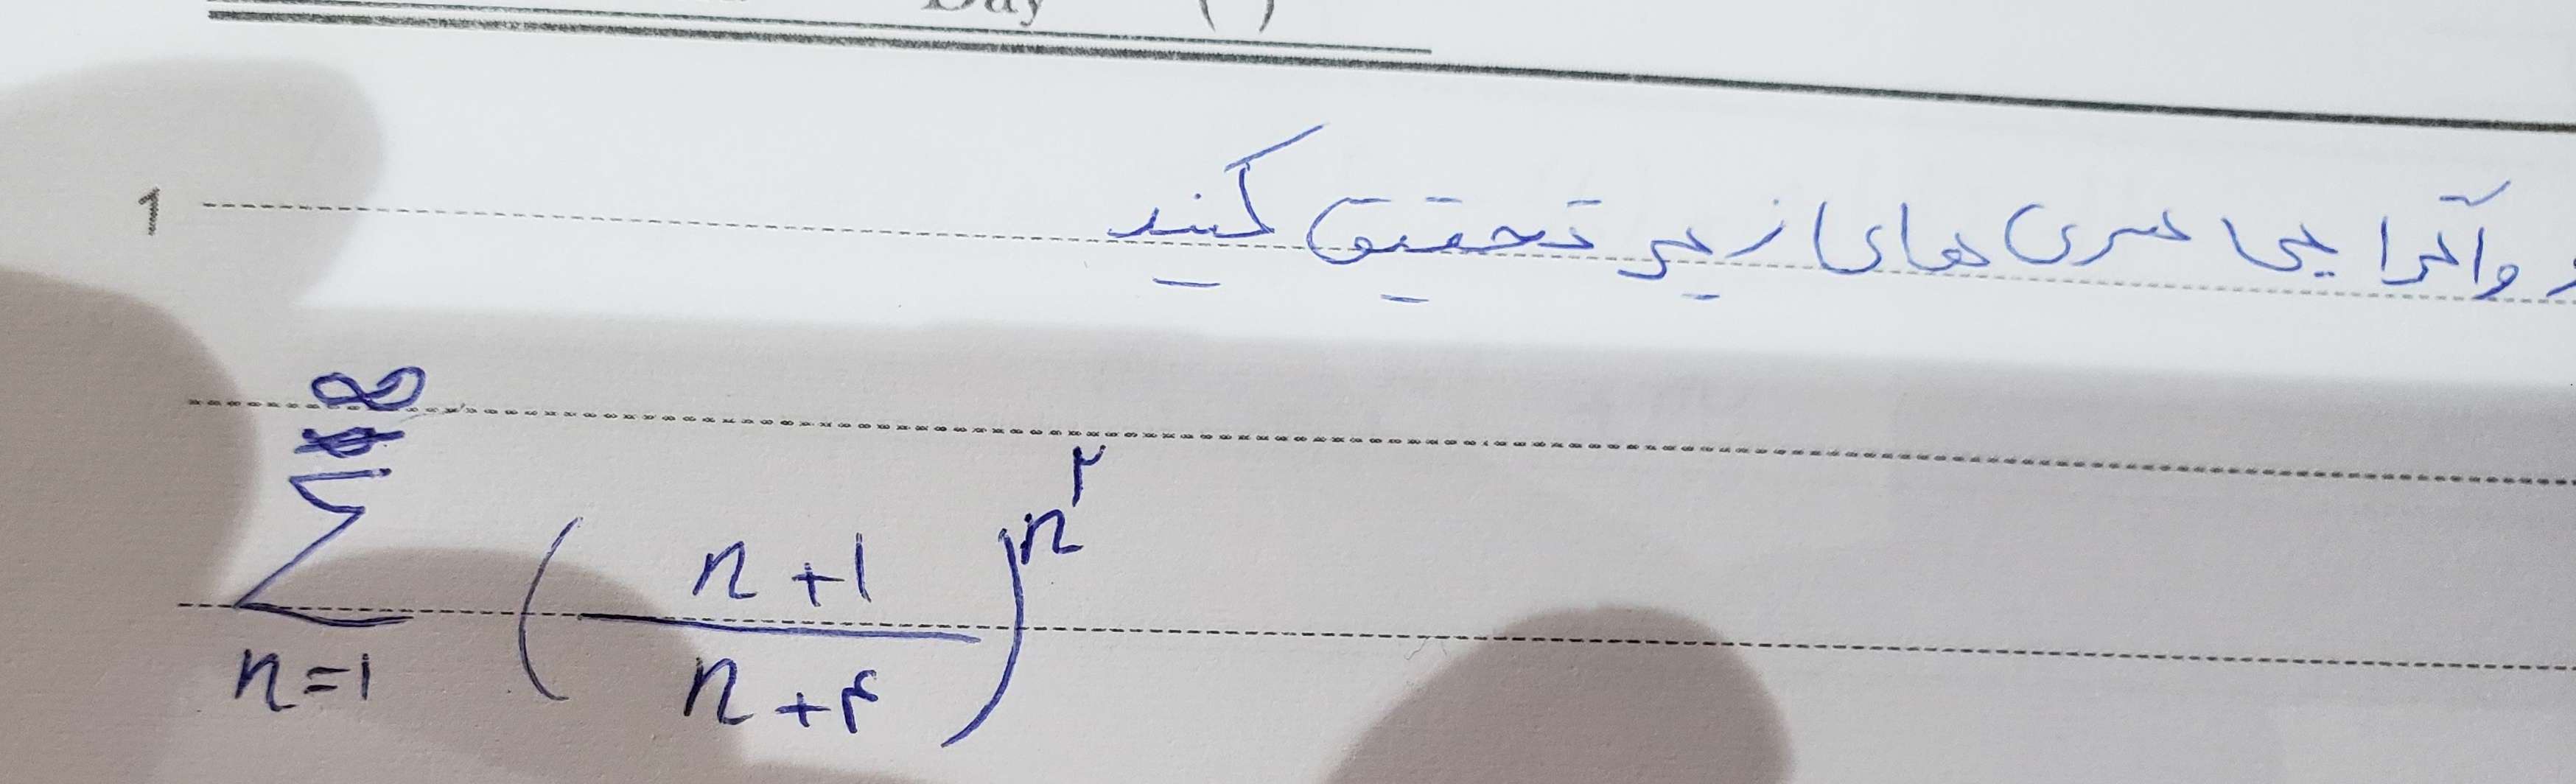 Day ( )
1
و واگرایی سری های زیر تحقیق کنید
∞
∑ (n+1 / n+۴)^n^۲
n=1